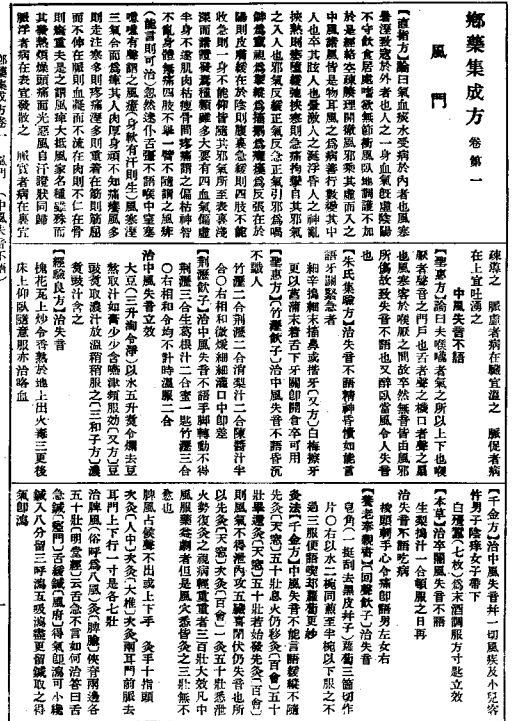 鄕藥集成方 卷第一
風門
【直指方】論曰氣血痰水受病於內者也風寒
暑溼致寇於外者也人之一身血氣旣虛陰陽
不守飲食居處嗜欲無節衝風臥地調護不加
於是經絡空疎腠理開徹風邪乘其虛而入之
中風諸風皆是物耳風之爲病善行數變其中
人也卒其眩人也暈激人之涎浮昏人之神亂
挾熱則 弛挾寒則急痛拘攣自其邪氣
之入人也邪氣反緩正氣反急正氣引邪爲喎
僻爲 爲反張在於
陽則皮膚緩在於陰則腹裏急緩則四肢不能
收急則一身不能仰皆隨其邪氣所至表裏淺
深而 大要有四血氣偏虛
半身不遂肌肉枯 骨間疼痛謂之偏枯神智
不亂身體無痛四肢不擧一臂不隨謂之風痱
(能言則可治)忽然迷仆舌强不語喉中窒塞
噫噫有聲謂之風癔(身軟有汗則生)風寒溼
三氣合而爲痺其人肉厚身頑不知痛癢風多
則走注寒多則疼痛溼多則重着在筋則筋屈
而不伸在脈則血凝而不流在肉則不仁在骨
則癱重夫是之謂風痺大抵風家名種雖殊而
其發熱煩燥頭痛面光惡風自汗證狀同歸
脈浮者病在表宜發散 脈實者病在裏宜
疎導之 脈虛者病在臟宜溫之 脈促者病
在上宜吐湧之
中風失音不語
【聖惠方】論曰夫喉嚨者氣之所以上下也喉
厭者聲音之門戶也舌者聲之機口者聲之扇
也風寒客於喉厭之間故卒然無音皆由風邪
所傷故致失音不語也又醉臥當風令人失音
也
【朱氏集驗方】治失音不語精神昏憒如能言
語牙關緊急者
細辛搗細末搐鼻或揩牙(又方)白梅擦牙
更以菖蒲末着舌下牙關卽開會卒可用
【聖惠方】(竹瀝飮子)治中風失音不語昏沉
不識人
竹瀝二合荆瀝二合消梨汁二合陳醬汁半
合〇右相和微煖細細灌口中卽差
(荆瀝飮子)治中風失音不語手脚轉動不得
荆瀝三合生葛根汁二合蜜一匙竹瀝三合
〇右相和合均不計時溫服二合
治中風失音立效
大豆(三升淘令淨)以水五升煑令爛去豆
熬取汁如 少少含嚥津頻服効(又方)豆
豉煑取濃汁放溫稍稍服之(三和子方)濃
煑豉汁含之
【經驗良方】治失音
槐花瓦上炒令香熟於地上出火毒三更後
床上仰臥隨意服亦治咯血
【千金方】治中風失音幷一切風疾及小兒客
忤男子陰痒女子帶下
白殭蠶(七枚)爲末酒調服方寸匙立效
【本草】治卒闇風失音不語
生梨搗汁一合頓服之日再
治失音不語吃病
梭頭刺手心令痛卽語男左女右
【養老奉親書】(回聲飮子)治失音
皂角(一挺刮去黑皮幷子)蘿蔔三箇切作
片〇右以水二椀同煎至半椀以下服之不
過三服便語喫却蘿蔔更妙
灸法【千金方】中風失音不能言語緩縱不隨
先灸(天窓)五十壯息火仍移灸(百會)五十
壯畢還灸(天窓)五十壯若始發先灸(百會)
則風氣不得泄內攻五臟喜閉伏仍失音也所
以先灸(天窓)次灸(百會)一灸五十壯悉泄
火勢復灸之視病輕重重者三百壯大效凡中
風服藥益劇者但是風穴悉皆灸之三壯無不
愈也
脾風占候聲不出或上下手 灸手十指頭
次灸(人中)次灸(大椎)次灸兩耳門前脈去
耳門上下行一寸是各七壯
治脾風(俗呼爲八風)灸(脾腧)俠脊兩邊各
五十壯【明堂經】云舌急不言如何治答曰舌
急鍼(瘂門)舌緩鍼(風府)得氣卽瀉可小繞
鍼入八分留三呼瀉五吸瀉盡更留鍼取之得
氣卽瀉